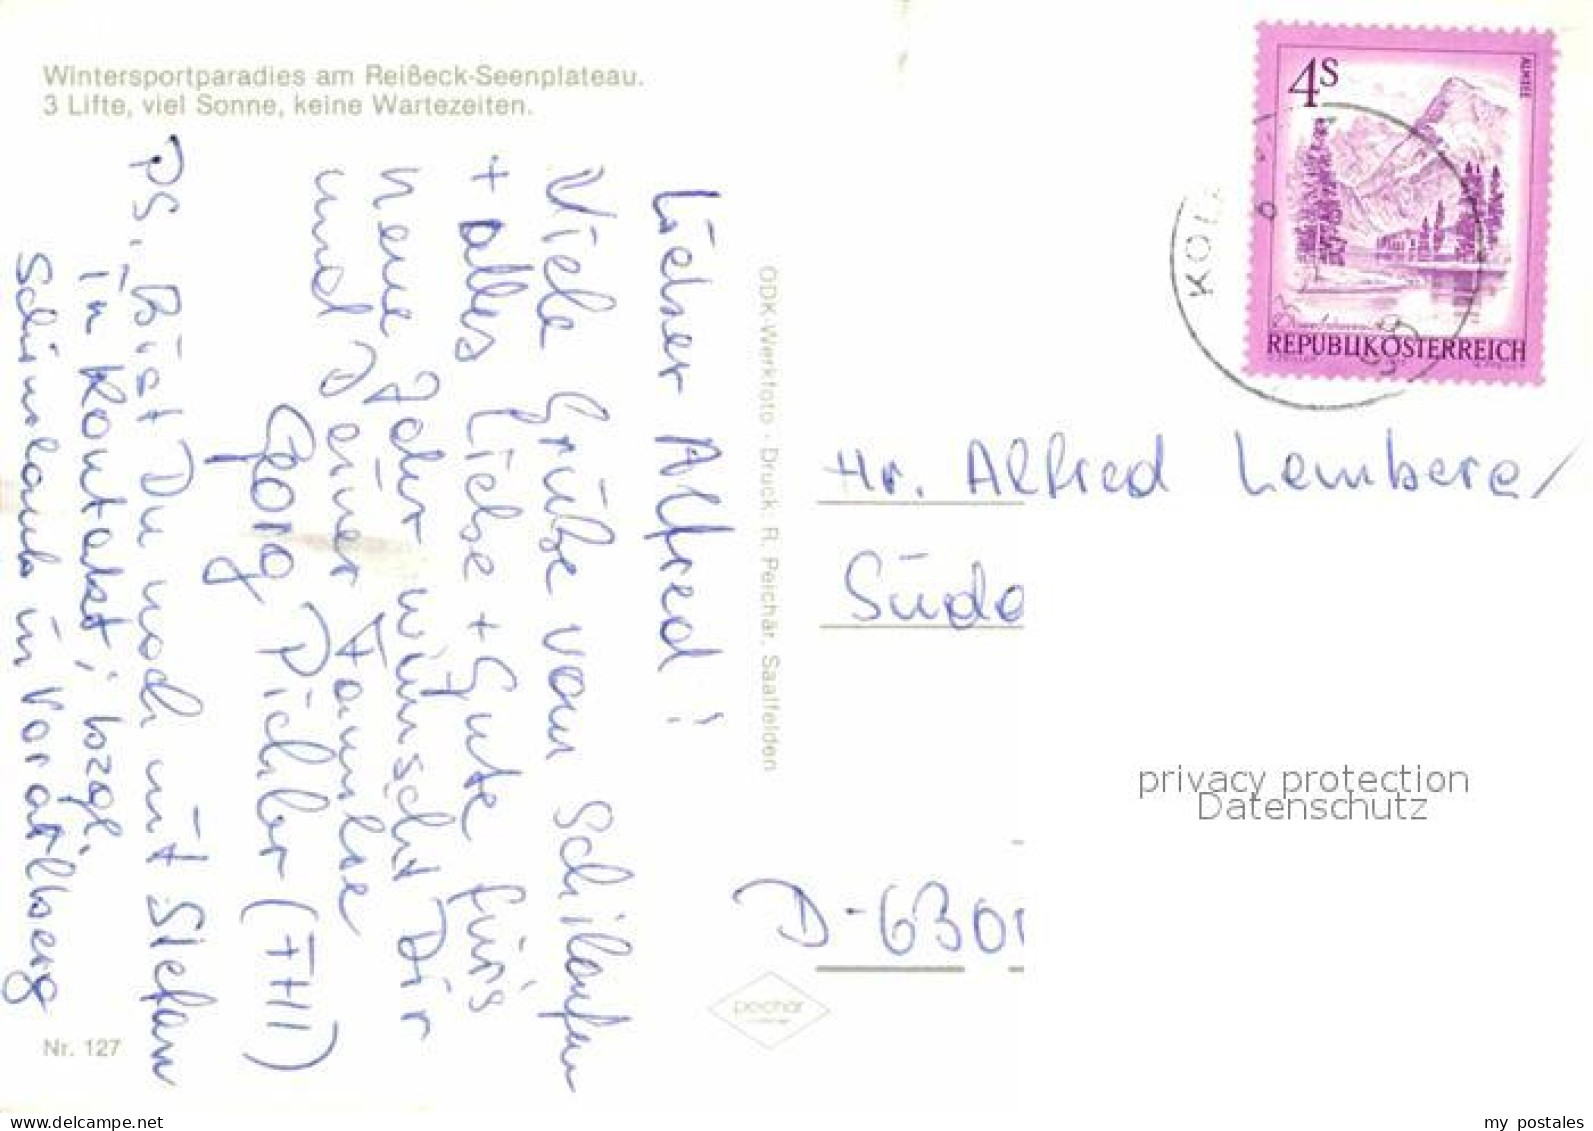 Wintersportparadies am Reißeck-Seenplateau.
3 Lifte, viel Sonne, keine Wartezeiten.
Lieber Alfred!
Viele Grüße vom Schilaufen
+ alles Liebe + Gute für's
neue Jahr wünscht Dir
und Deiner Familie
Georg Pichler (FHI)
PS. Bist Du noch mit Stefan
in Kontakt, bzgl.
Schiurlaub in Vorarlberg
Nr. 127
ODK-Werkfoto · Druck: R. Peichär, Saalfelden
peichär
4S
ALMSEE
REPUBLIK ÖSTERREICH
KOL
Hr. Alfred Lemberg
Süda
D-6300
privacy protection
Datenschutz
my postales
www.delcampe.net